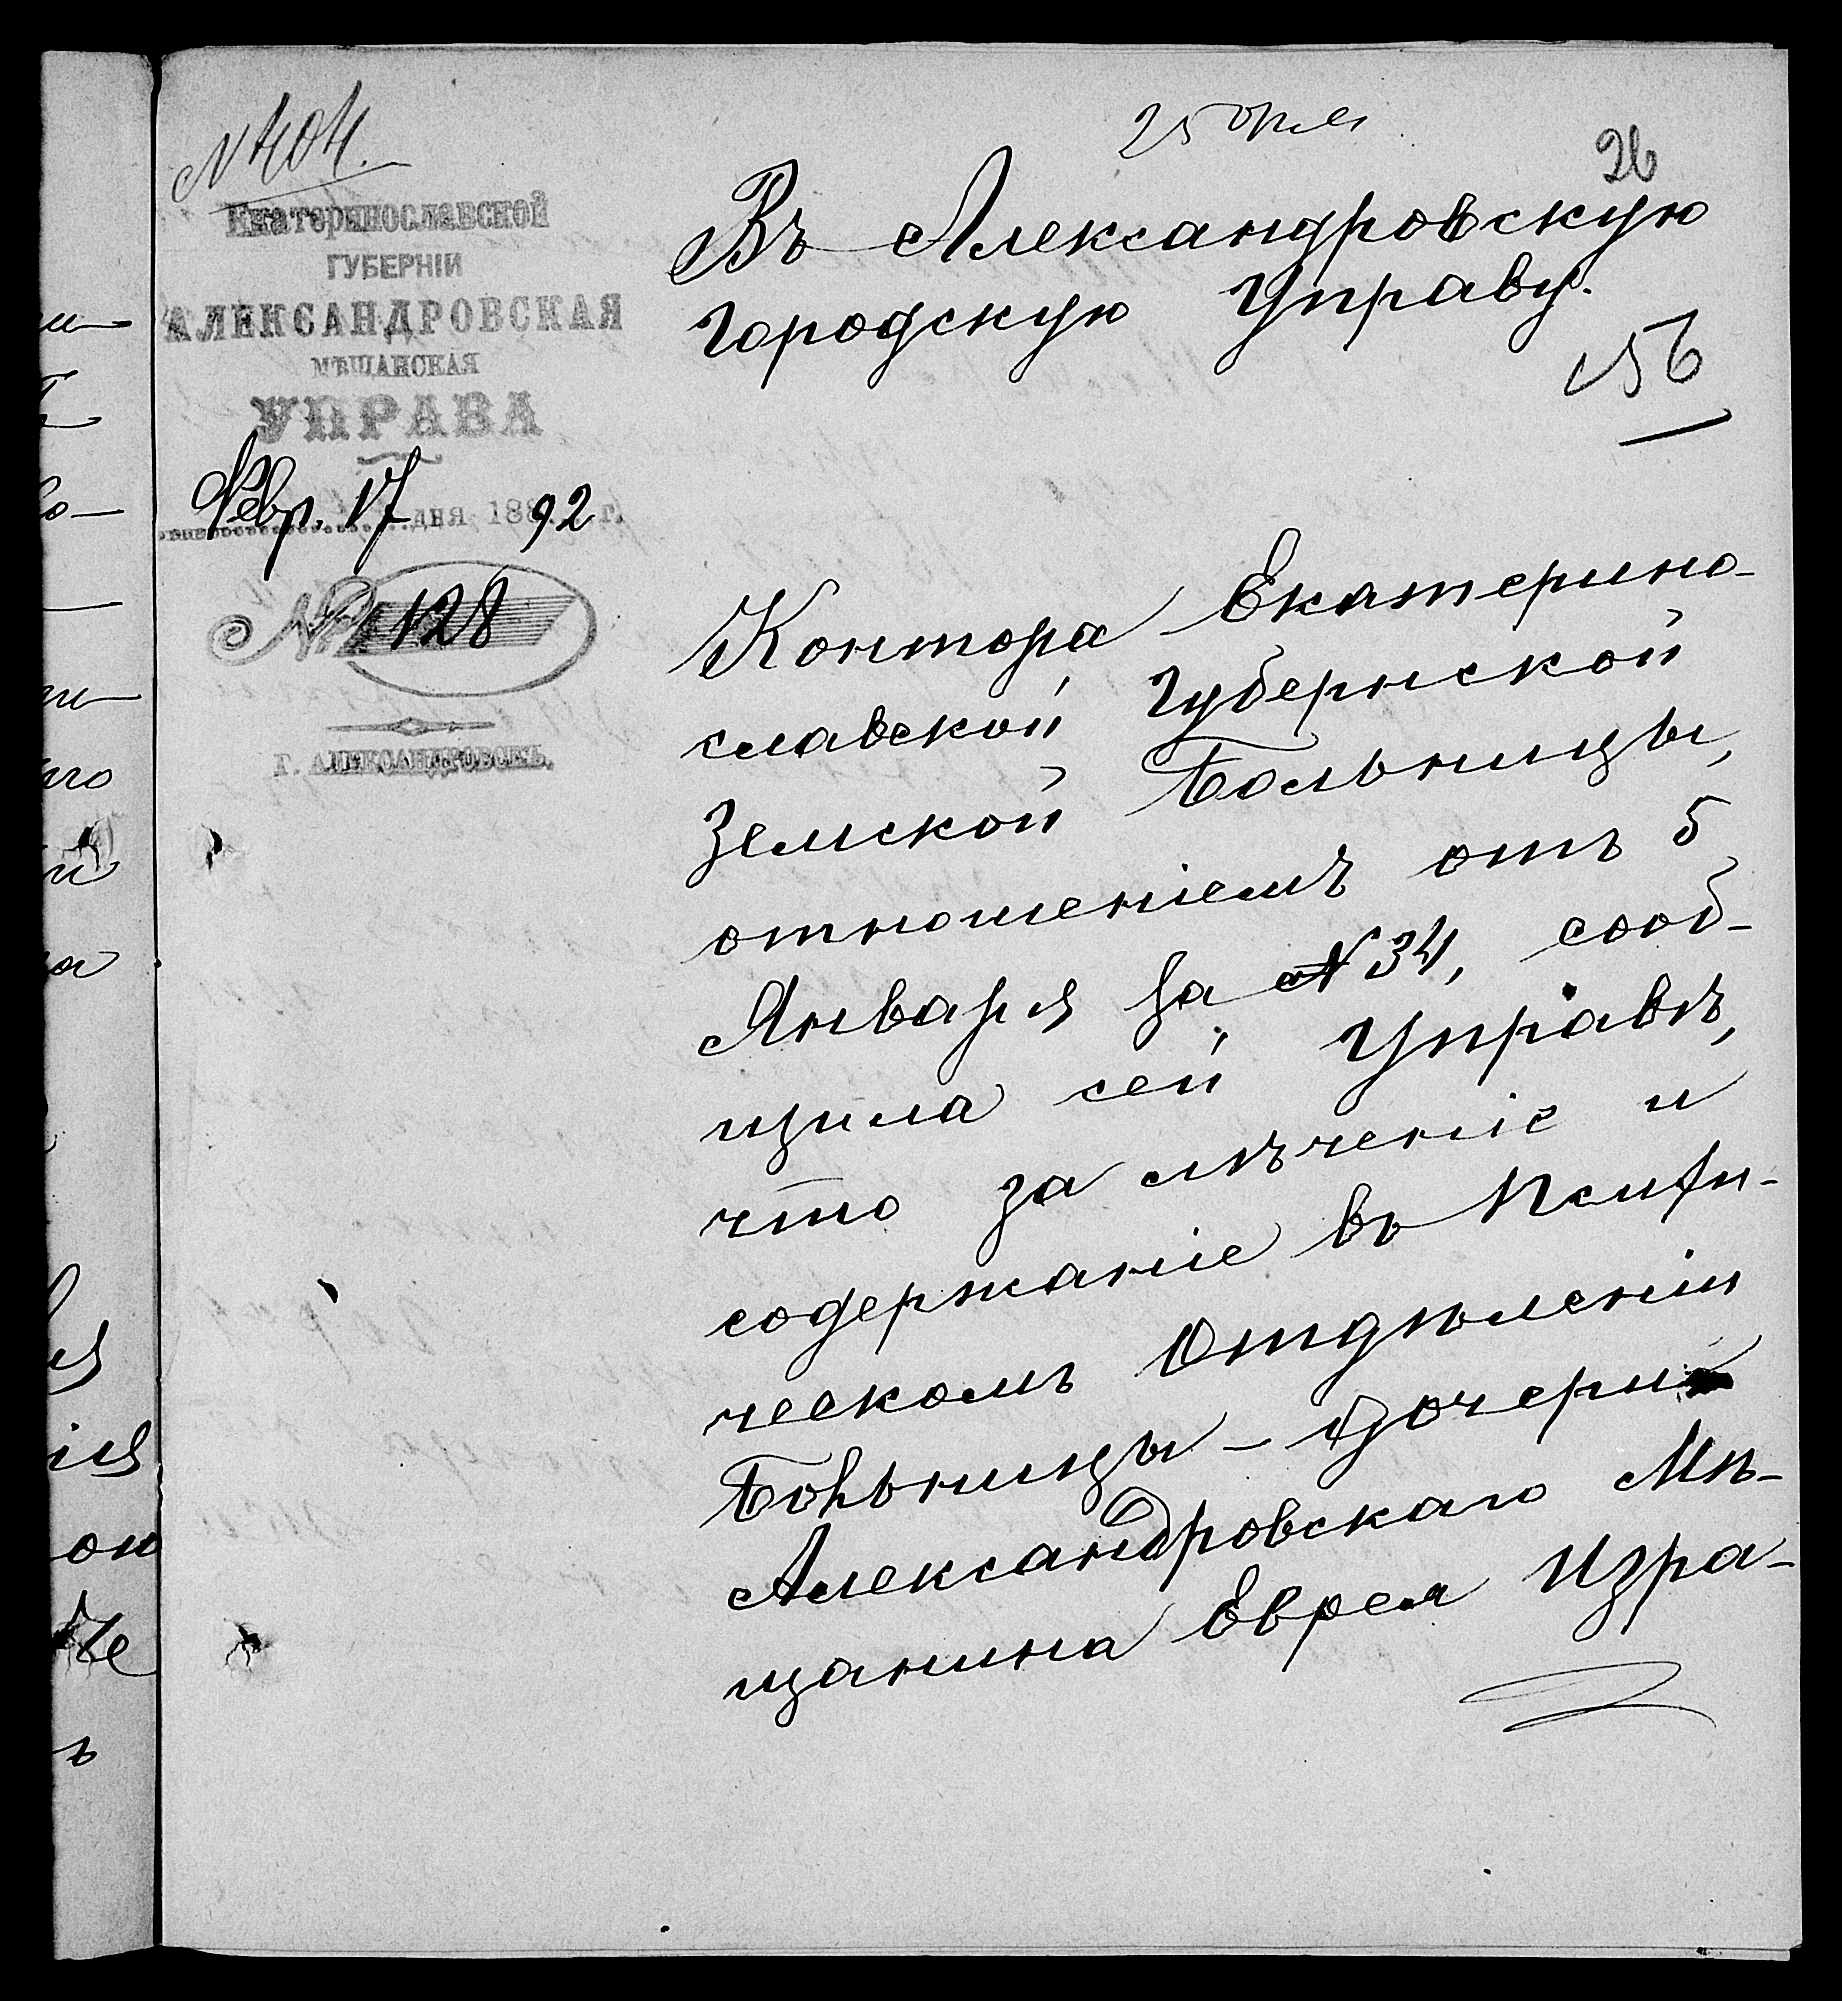 № 404.
25 Фев
26
Екатеринославской
ГУБЕРНІИ
АЛЕКСАНДРОВСКАЯ
МѢЩАНСКАЯ
УПРАВА
Февр. 17 дня 188 92 г.
№ 128
г. АЛЕКСАНДРОВСКЪ.
Въ Александровскую
Городскую Управу.
156
Контора Екатерино-
славской Губернской
Земской Больницы,
отношеніемъ отъ 5
Января за № 34, сооб-
щила сей Управѣ,
что за лѣченіе и
содержаніе въ Псифи-
ческомъ Отдѣленіи
Больницы - дочери
Александровскаго Мѣ-
щанина Еврея Изра-